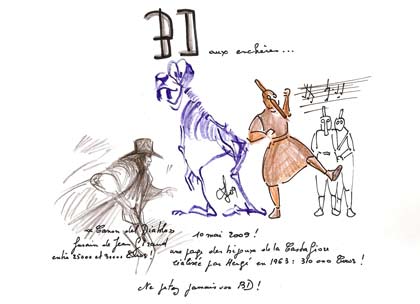 BD
aux enchères...
10 mai 2009 !
"Canon del Diablo"
fusain de Jean Giraud
entre 25000 et 30000 Euros !
une page des bijoux de la Castafiore
réalisée par Hergé en 1963 : 310 000 Euros !
Ne jetez jamais vos BD !